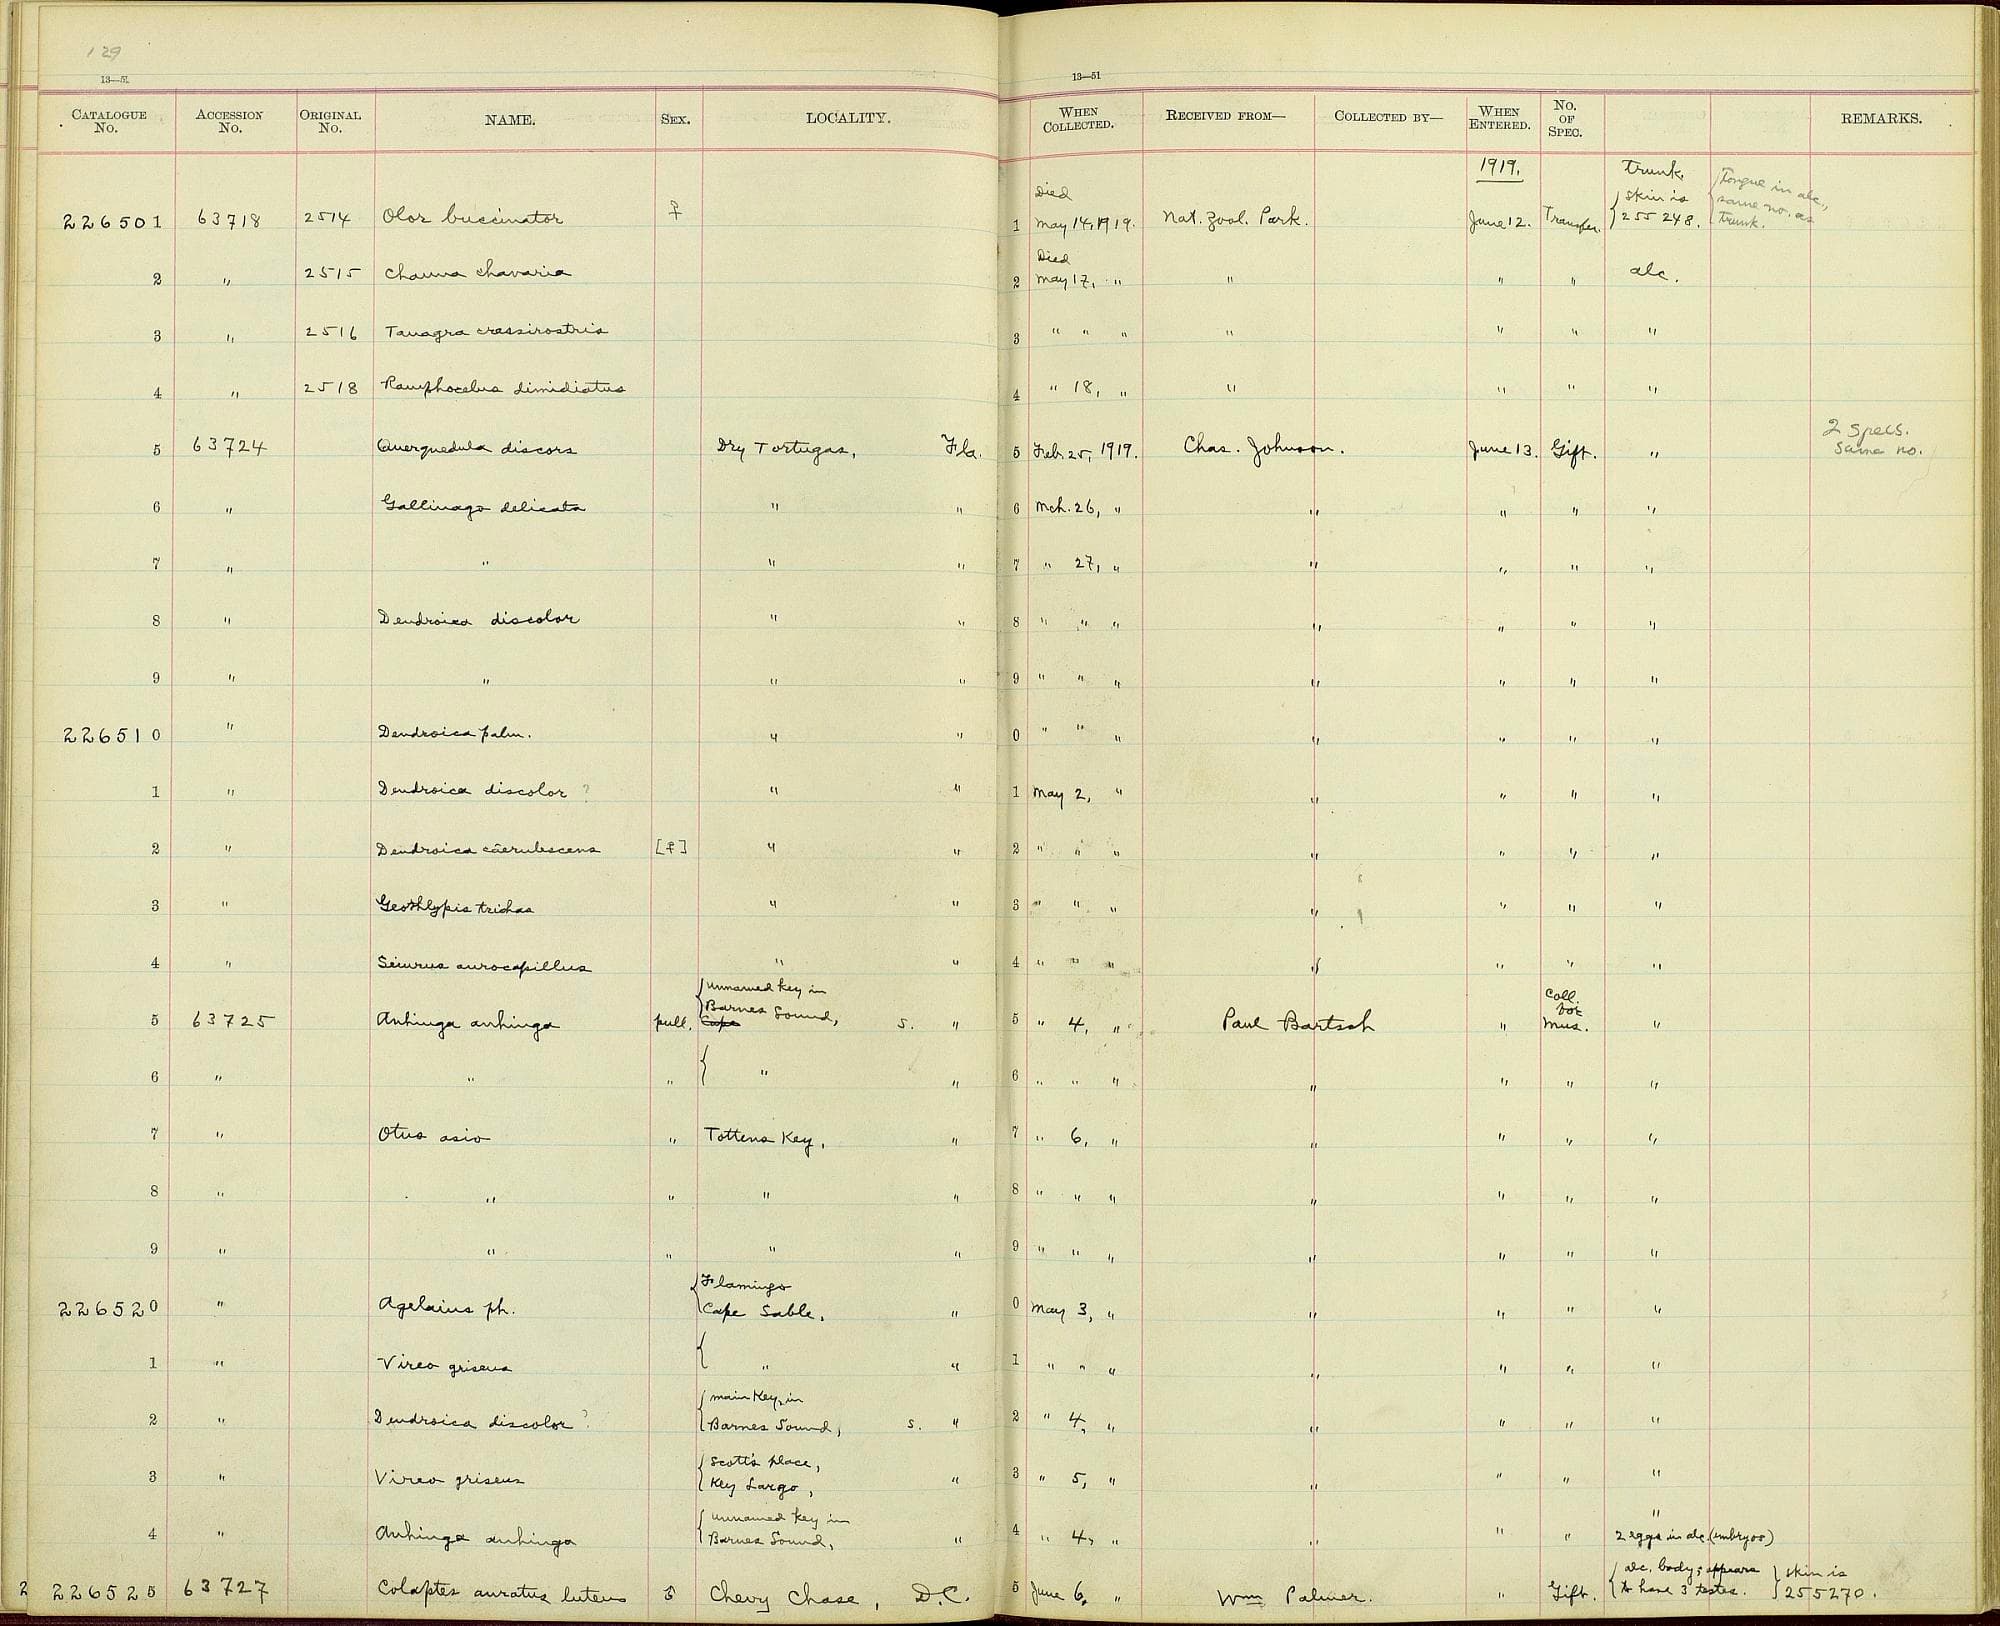 129
13—51.
13—51
CATALOGUE No. ACCESSION No. ORIGINAL No. NAME. SEX. LOCALITY. WHEN COLLECTED. RECEIVED FROM— COLLECTED BY— WHEN ENTERED. No. OF SPEC. REMARKS.
1919.
226501 63718 2514 Olor buccinator ♀ 1 Died May 14, 1919. Nat. Zool. Park. June 12. Transfer. trunk. { skin is 255248. { Tongue in alc., same no. as trunk.
2 " 2515 Chauna chavaria 2 Died May 17, " " " " alc.
3 " 2516 Tanagra crassirostris 3 " " " " " " "
4 " 2518 Ramphocelus dimidiatus 4 " 18, " " " " "
5 63724 Querquedula discors Dry Tortugas, Fla. 5 Feb. 25, 1919. Chas. Johnson. June 13. Gift. " 2 specs. same no.
6 " Gallinago delicata " " 6 Mch. 26, " " " " "
7 " " " " 7 " 27, " " " " "
8 " Dendroica discolor " " 8 " " " " " " "
9 " " " " 9 " " " " " " "
226510 " Dendroica palm. " " 0 " " " " " " "
1 " Dendroica discolor ? " " 1 May 2, " " " " "
2 " Dendroica caerulescens [♀] " " 2 " " " " " " "
3 " Geothlypis trichas " " 3 " " " " " " "
4 " Seiurus aurocapillus " " 4 " " " " " " "
5 63725 Anhinga anhinga pull. { unnamed key in Barnes Sound, Cape S. " 5 " 4, " Paul Bartsch " Coll. for Mus. "
6 " " " { " " 6 " " " " " " "
7 " Otus asio " Tottens Key, " 7 " 6, " " " " "
8 " " " " " 8 " " " " " " "
9 " " " " " 9 " " " " " " "
226520 " Agelaius ph. { Flamingo Cape Sable. " 0 May 3, " " " " "
1 " Vireo griseus { " " 1 " " " " " " "
2 " Dendroica discolor ? { main Key, in Barnes Sound, S. " 2 " 4, " " " " "
3 " Vireo griseus { Scott's place, Key Largo, " 3 " 5, " " " " "
4 " Anhinga anhinga { unnamed key in Barnes Sound, " 4 " 4, " " " " " 2 eggs in alc. (embryos)
2 226525 63727 Colaptes auratus luteus ♂ Chevy Chase, D.C. 5 June 6, " Wm Palmer. " Gift. { alc. body; appears to have 3 testes. } skin is 255270.